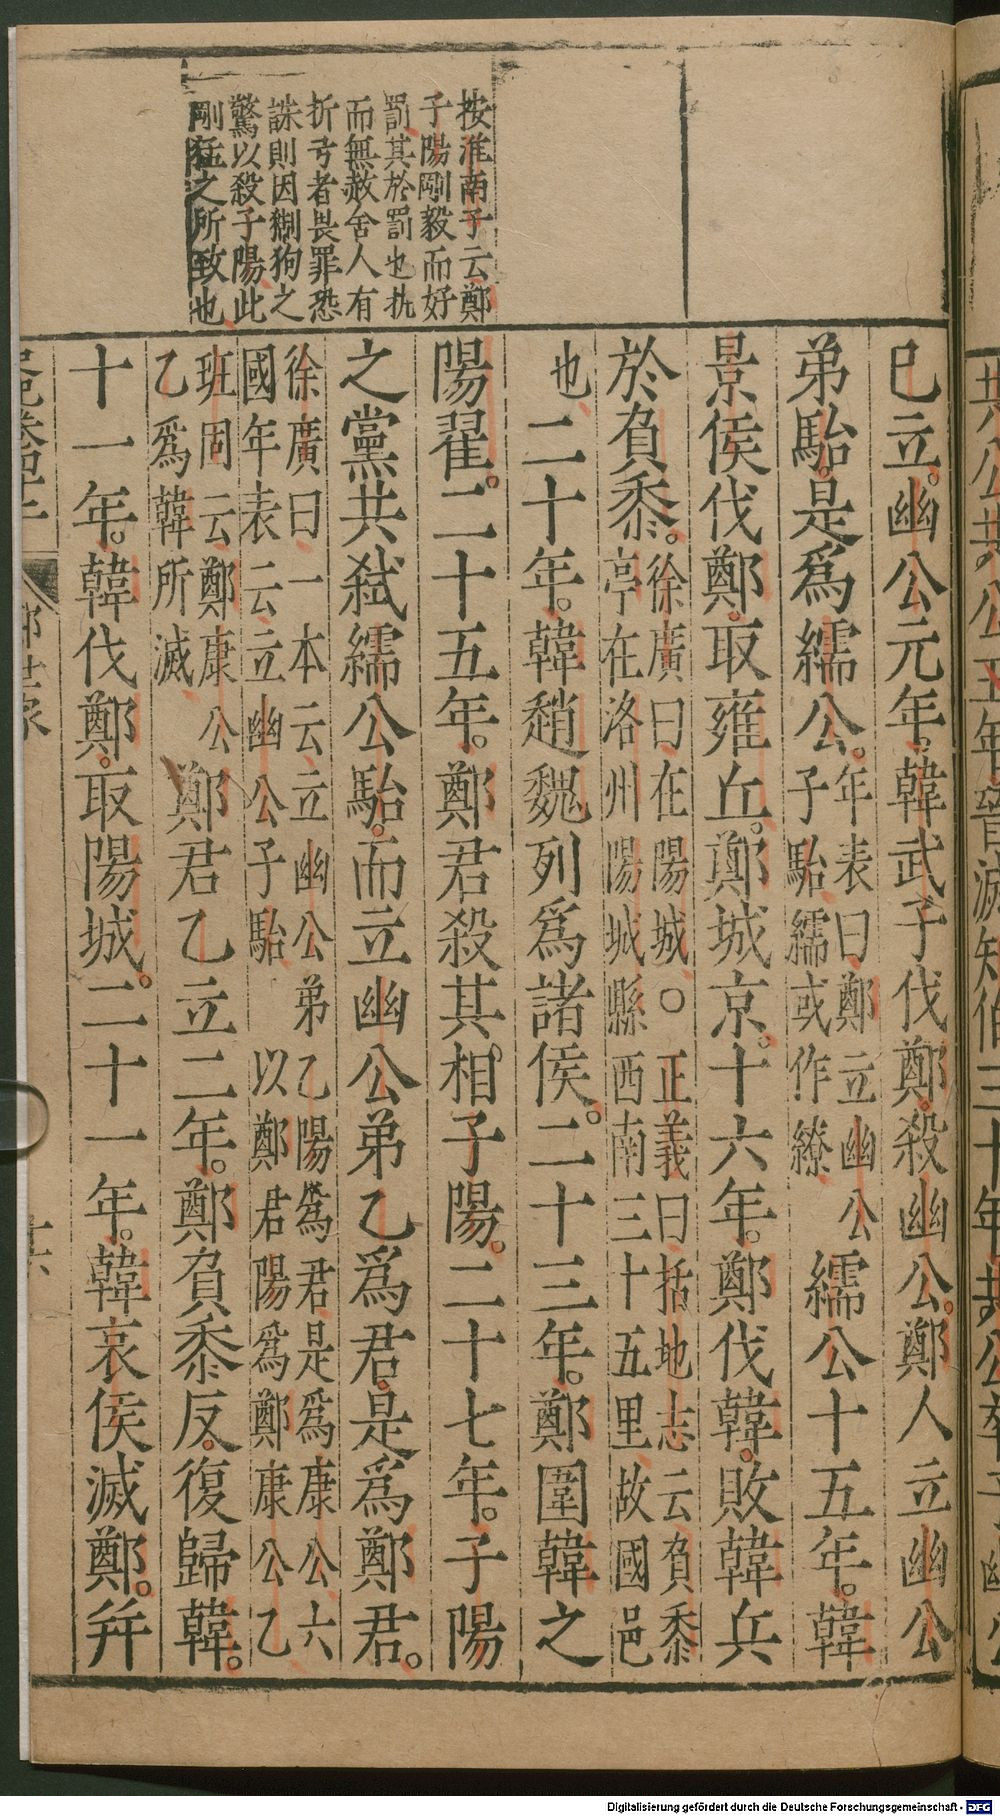 按淮南子云鄭
子陽剛毅而好
罰其於罰也執
而無赦舍人有
折弓者畏罪恐
誅則因猘狗之
驚以殺子陽此
剛猛之所致也
巳立。幽公元年。韓武子伐鄭。殺幽公。鄭人立幽公
弟駘。是爲繻公。年表曰鄭立幽公子駘繻或作繚繻公十五年。韓
景侯伐鄭。取雍丘。鄭城京。十六年。鄭伐韓。敗韓兵
於負黍。徐廣曰在陽城。○正義曰括地志云負黍亭在洛州陽城縣西南三十五里故國邑
也二十年。韓趙魏列爲諸侯。二十三年。鄭圍韓之
陽翟。二十五年。鄭君殺其相子陽。二十七年。子陽
之黨共弒繻公駘。而立幽公弟乙爲君。是爲鄭君。
徐廣曰一本云立幽公弟乙陽爲君是爲康公六國年表云立幽公子駘以鄭君陽爲鄭康公乙
班固云鄭康公乙爲韓所滅鄭君乙立二年。鄭負黍反。復歸韓。
十一年。韓伐鄭。取陽城。二十一年。韓哀侯滅鄭。幷
鄭世家
十六
Digitalisierung gefördert durch die Deutsche Forschungsgemeinschaft - DFG